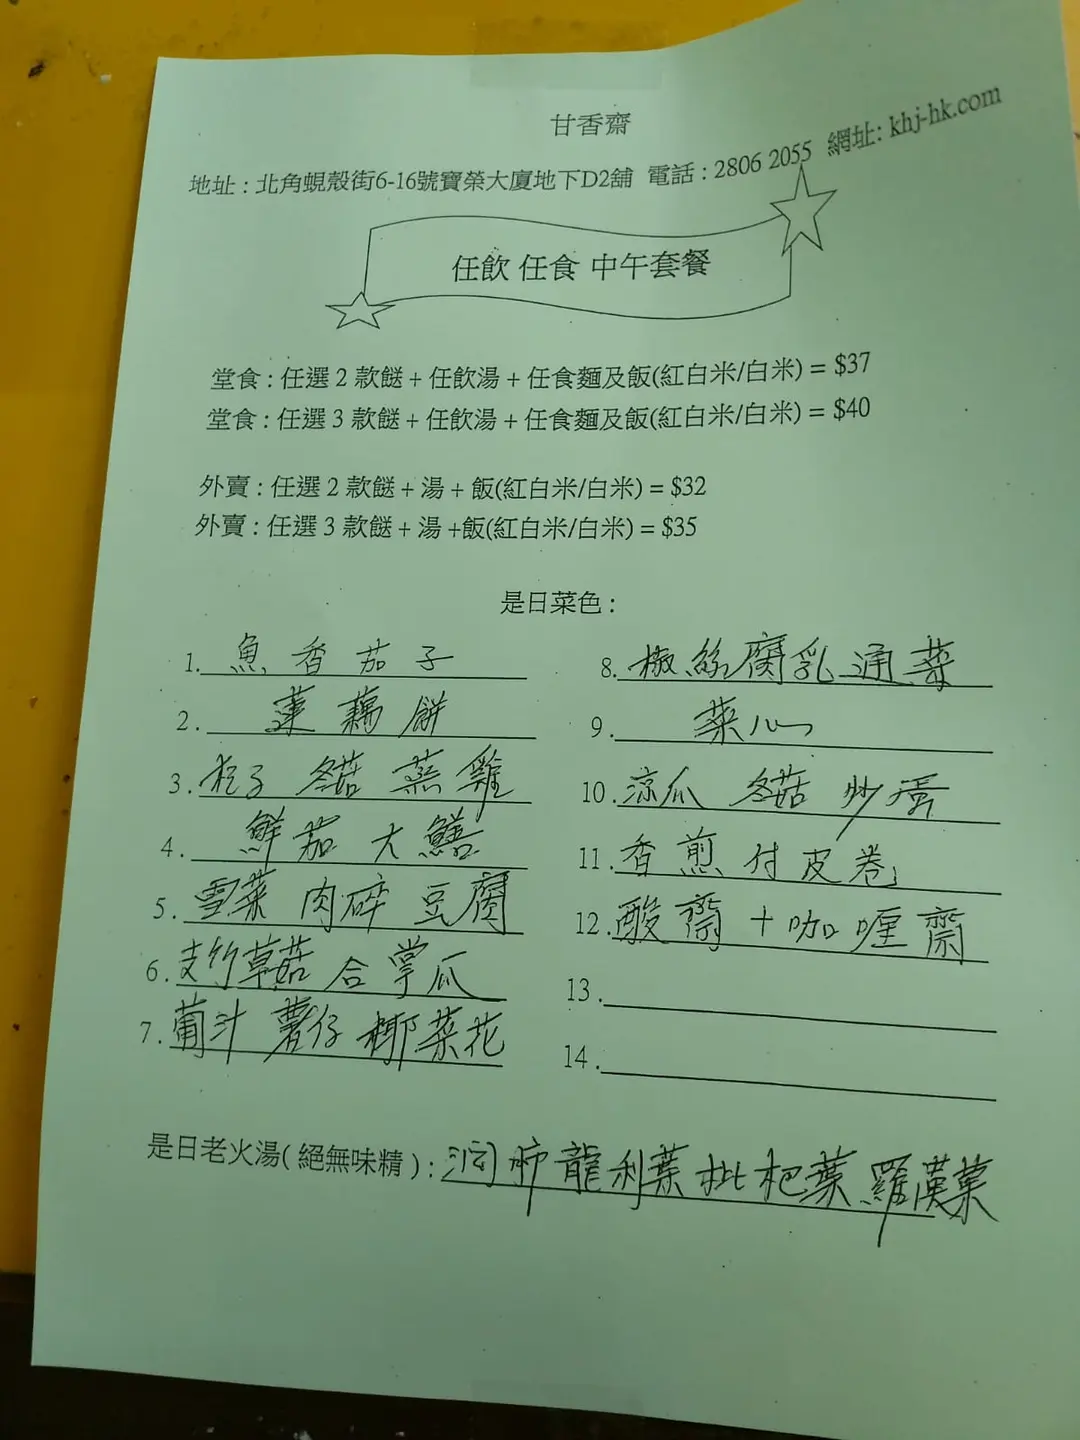 甘香齋
地址 : 北角蜆殼街6-16號寶榮大廈地下D2舖 電話 : 2806 2055 網址: khj-hk.com
任飲 任食 中午套餐
堂食 : 任選 2 款餸 + 任飲湯 + 任食麵及飯(紅白米/白米) = $37
堂食 : 任選 3 款餸 + 任飲湯 + 任食麵及飯(紅白米/白米) = $40
外賣 : 任選 2 款餸 + 湯 + 飯(紅白米/白米) = $32
外賣 : 任選 3 款餸 + 湯 +飯(紅白米/白米) = $35
是日菜色 :
1. 魚香茄子
2. 蓮藕餅
3. 杞子 冬菇 蒸雞
4. 鮮茄大鱔
5. 雪菜 肉碎 豆腐
6. 支竹草菇 合掌瓜
7. 葡汁 薯仔 椰菜花
8. 椒絲腐乳通菜
9. 菜心
10. 涼瓜 冬菇 炒蛋
11. 香煎付皮卷
12. 酸齋 + 咖喱齋
13.
14.
是日老火湯( 絕無味精 ) : 龍利葉枇杷葉羅漢菓